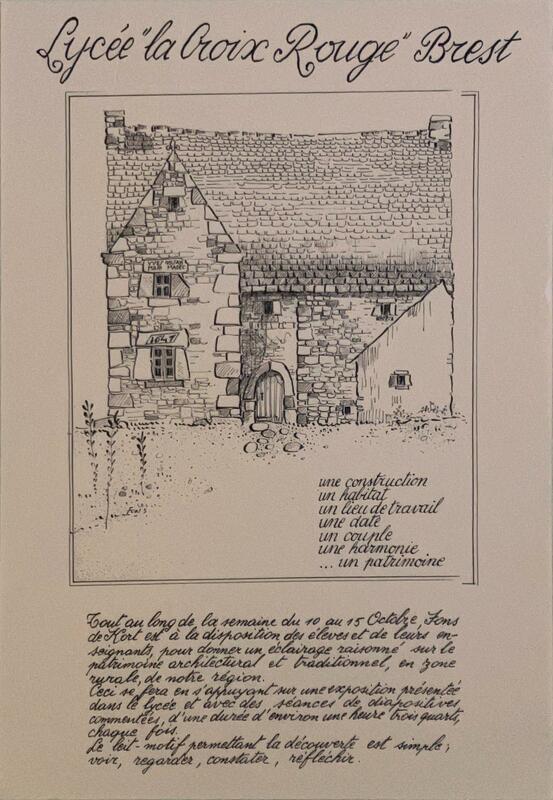 Lycée "la Croix Rouge" Brest
1641
une construction
un habitat
un lieu de travail
une date
un couple
une harmonie
... un patrimoine
Tout au long de, la semaine du 10 au 15 Octobre, Fons
de Kort est à la disposition des élèves et de leurs en-
seignants, pour donner un éclairage raisonné sur le
patrimoine architectural et traditionnel, en zone
rurale, de notre région.
Ceci se fera en s'appuyant sur une exposition présentée
dans le lycée et avec des, séances de diapositives,
commentées, d'une durée d'environ une heure trois quarts,
chaque fois.
Le leit-motif permettant la découverte est simple;
voir, regarder, constater, réfléchir.